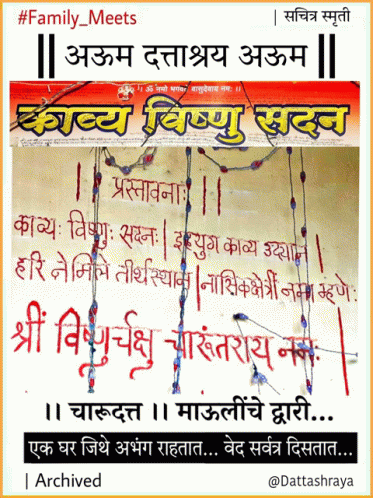 #Family_Meets | सचित्र स्मृती
|| अऊम दत्ताश्रय अऊम ||
।। ॐ नमो भगवते वासुदेवाय नमः ।।
काव्य विष्णु सदन
| प्रस्तावनाः ||
काव्यः विष्णुः सदनः | इहयुग काव्य उद्यान |
हरि नेमिले तीर्थस्थान | नासिकक्षेत्री नमः म्हणेः
श्रीं विष्णुर्चक्षु चारूंतराय नमः |
।। चारूदत्त ।। माऊलींचे द्वारी...
एक घर जिथे अभंग राहतात... वेद सर्वत्र दिसतात...
| Archived @Dattashraya